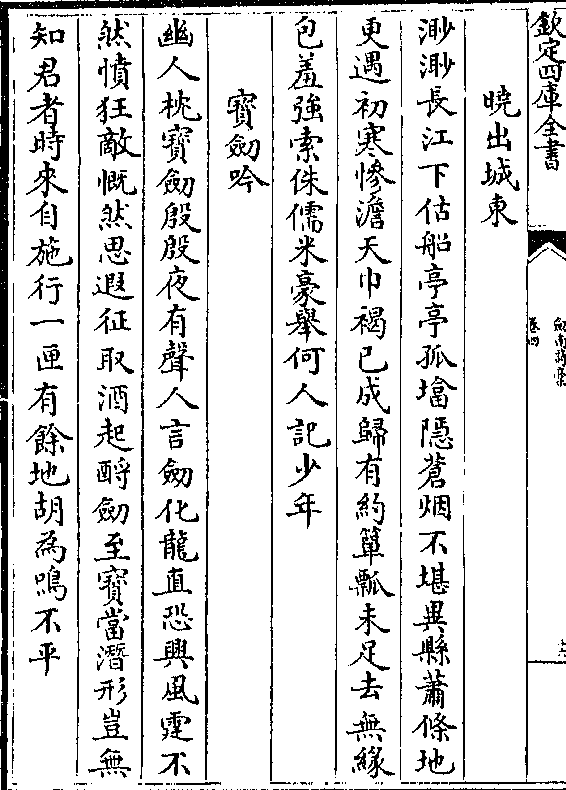 欽定四庫全書
劍南詩稾
卷四
十六
曉出城東
渺渺長江下估船亭亭孤㙮隱蒼烟不堪異縣蕭條地
更遇初寒慘澹天巾褐已成歸有約簞瓢未足去無緣
包羞強索侏儒米豪舉何人記少年
寶劒吟
幽人枕寶劒殷殷夜有聲人言劒化龍直恐興風霆不
然憤狂敵慨然思遐征取酒起酹劒至寶當潛形豈無
知君者時來自施行一匣有餘地胡為鳴不平